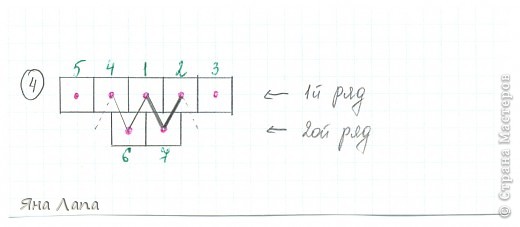 5 4 1 2 3
4
← 1й ряд
← 2ой ряд
6 7
Яна Лапа
© Страна Мастеров